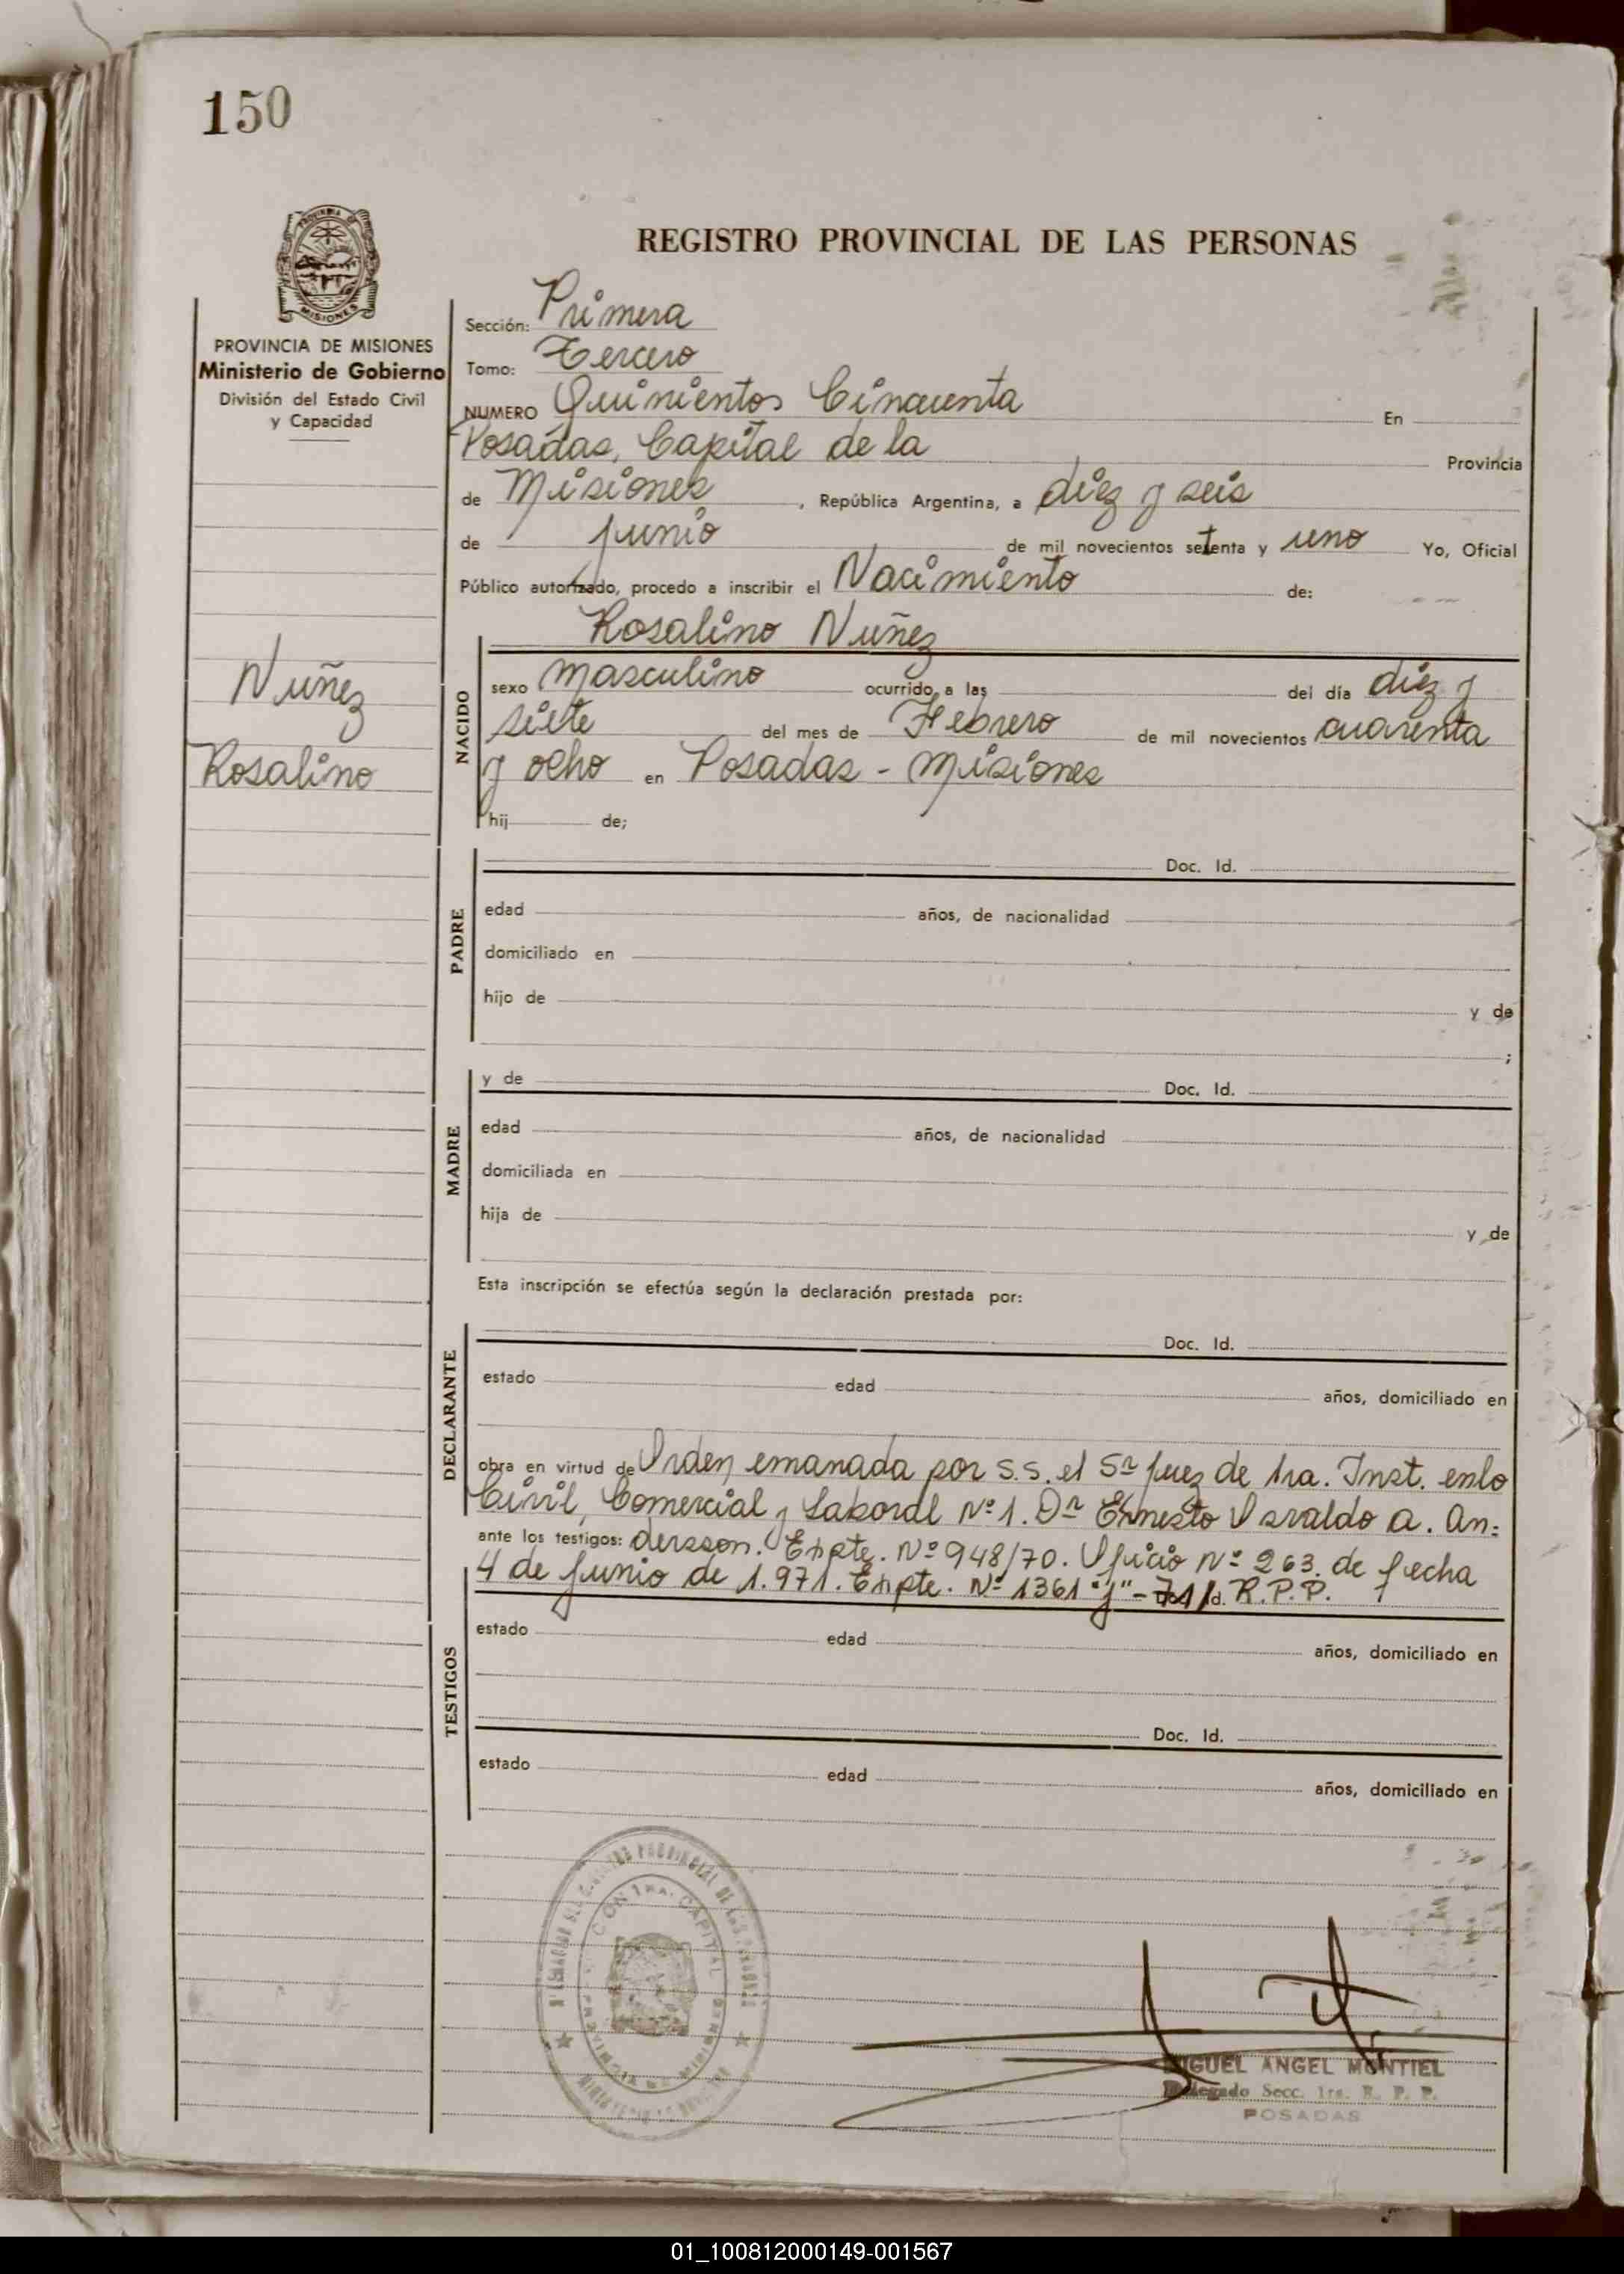 150
REGISTRO PROVINCIAL DE LAS PERSONAS
MISIONES
PROVINCIA DE MISIONES
Ministerio de Gobierno
División del Estado Civil
y Capacidad
Nuñez
Rosalino
Sección: Primera
Tomo: Tercero
NUMERO Quinientos Cincuenta En
Posadas, Capital de la Provincia
de Misiones, República Argentina, a diez y seis
de Junio de mil novecientos setenta y uno Yo, Oficial
Público autorizado, procedo a inscribir el Nacimiento de:
Rosalino Nuñez
NACIDO
sexo masculino ocurrido a las del día diez y
siete del mes de Febrero de mil novecientos cuarenta
y ocho en Posadas - Misiones
hij de;
PADRE
Doc. Id.
edad años, de nacionalidad
domiciliado en
hijo de y de
;
MADRE
y de Doc. Id.
edad años, de nacionalidad
domiciliada en
hija de y de
Esta inscripción se efectúa según la declaración prestada por:
DECLARANTE
Doc. Id.
estado edad años, domiciliado en
obra en virtud de Orden emanada por S.S. el Sr Juez de 1ra. Inst. en lo
Civil, Comercial y Laboral Nº 1. Dr Ernesto Osvaldo A. An-
ante los testigos: dersson. Expte. Nº 948/70. Oficio Nº 263. de fecha
4 de Junio de 1.971. Expte. Nº 1361 "J" - 71/ Id. R.P.P.
TESTIGOS
estado edad años, domiciliado en
Doc. Id.
estado edad años, domiciliado en
PROVINCIAL DE LAS PERSONAS
CAPITAL
MIGUEL ANGEL MONTIEL
Delegado Secc. 1ra. R. P. P.
POSADAS
01_100812000149-001567